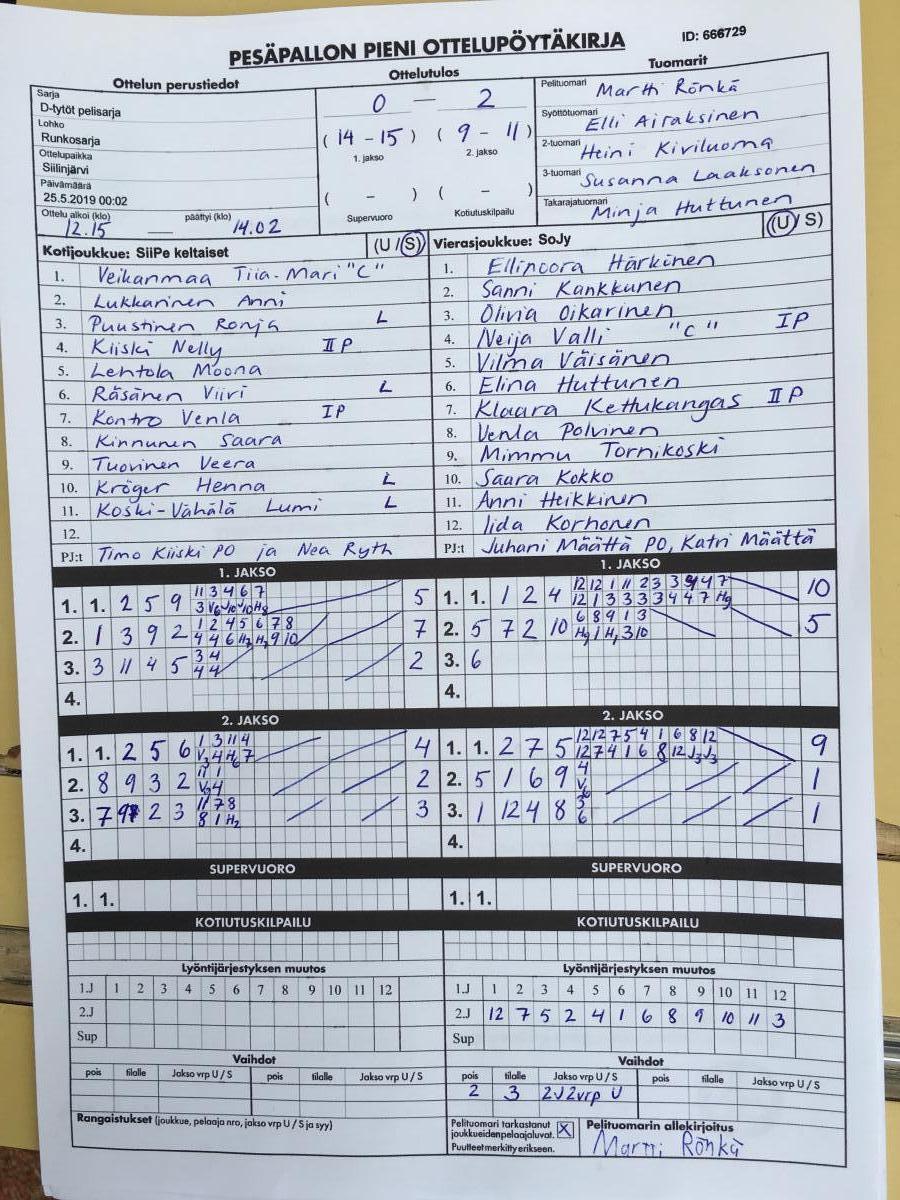 PESÄPALLON PIENI OTTELUPÖYTÄKIRJA
ID: 666729
Ottelun perustiedot
Sarja
D-tytöt pelisarja
Lohko
Runkosarja
Ottelupaikka
Siilinjärvi
Päivämäärä
25.5.2019 00:02
Ottelu alkoi (klo) päättyi (klo)
12.15 14.02
Ottelutulos
0 — 2
( 14 - 15 ) ( 9 - 11 )
1. jakso 2. jakso
( - ) ( - )
Supervuoro Kotiutuskilpailu
Tuomarit
Pelituomari Martti Rönkä
Syöttötuomari Elli Airaksinen
2-tuomari Heini Kiviluoma
3-tuomari Susanna Laaksonen
Takarajatuomari Minja Huttunen
Kotijoukkue: SiiPe keltaiset (U / S)
1. Veikanmaa Tiia-Mari "C"
2. Lukkarinen Anni
3. Puustinen Ronja L
4. Kiiski Nelly II P
5. Lehtola Moona
6. Räsänen Viivi L
7. Kontro Venla I P
8. Kinnunen Saara
9. Tuovinen Veera
10. Kröger Henna L
11. Koski-Vähälä Lumi L
12.
PJ:t Timo Kiiski PO ja Nea Ryth
Vierasjoukkue: SoJy (U / S)
1. Ellinoora Härkinen
2. Sanni Kankkunen
3. Olivia Oikarinen
4. Neija Valli "C" I P
5. Vilma Väisänen
6. Elina Huttunen
7. Klaara Kettukangas II P
8. Venla Polvinen
9. Mimmu Tornikoski
10. Saara Kokko
11. Anni Heikkinen
12. Iida Korhonen
PJ:t Juhani Määttä PO, Katri Määttä
1. JAKSO
1. 1. 2 5 9 11 3 4 6 7 5
2. 1 3 9 2 1 2 4 5 6 7 8 7
4 4 6 H2 H2 9 10
3. 3 11 4 5 3 4 2
4 4
4.
1. JAKSO
1. 1. 1 2 4 10
12 1 3 3 3 3 4 4 7 Hg
2. 5 7 2 10 6 8 9 1 3 5
3. 6
4.
2. JAKSO
1. 1. 2 5 6 1 3 11 4 4
2. 8 9 3 2 11 1 2
3. 7 2 3 11 7 8 3
8 1 H2
4.
2. JAKSO
1. 1. 2 7 5 12 12 7 5 4 1 6 8 12 9
12 7 4 1 6 8 12 J3 J3
2. 5 1 6 9 4 1
3. 1 12 4 8 1
6
4.
SUPERVUORO
1. 1.
SUPERVUORO
1. 1.
KOTIUTUSKILPAILU
KOTIUTUSKILPAILU
Lyöntijärjestyksen muutos
1.J 1 2 3 4 5 6 7 8 9 10 11 12
2.J
Sup
Lyöntijärjestyksen muutos
1.J 1 2 3 4 5 6 7 8 9 10 11 12
2.J 12 7 5 2 4 1 6 8 9 10 11 3
Sup
Vaihdot
pois tilalle Jakso vrp U / S pois tilalle Jakso vrp U / S
Vaihdot
pois tilalle Jakso vrp U / S pois tilalle Jakso vrp U / S
2 3 2J2vrp U
Rangaistukset (joukkue, pelaaja nro, jakso vrp U / S ja syy)
Pelituomari tarkastanut
joukkueiden pelaajaluvat. X
Puutteet merkitty erikseen.
Pelituomarin allekirjoitus
Martti Rönkä